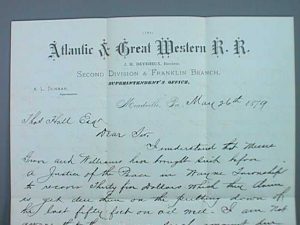 Atlantic & Great Western R. R.
J. H. DEVEREUX, Receiver.
SECOND DIVISION & FRANKLIN BRANCH.
SUPERINTENDENT'S OFFICE.
A. L. DUNBAR,
Superintendent.
Meadville, Pa May 26th 1879
Thos Hall Esqr
Dear Sir,
I understand that Messrs
and Williams have brought suit before
a Justice of the Peace in Wayne Township
to recover Thirty five Dollars which they claim
is yet due them on the putting down of
the last fifty feet on oil well. I am not